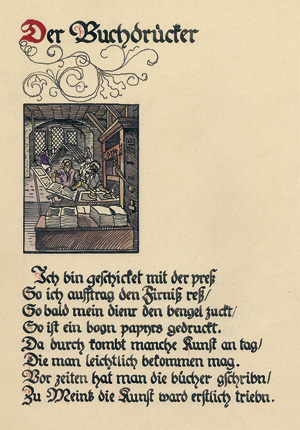 Der Buchdrücker
Ich bin geschicket mit der preß
So ich aufftrag den Firniß reß/
So bald mein dienr den bengel zuckt/
So ist ein bogn papyrs gedruckt.
Da durch kombt manche Kunst an tag/
Die man leichtlich bekommen mag.
Vor zeiten hat man die bücher gschribn/
Zu Meintz die Kunst ward erstlich triebn.